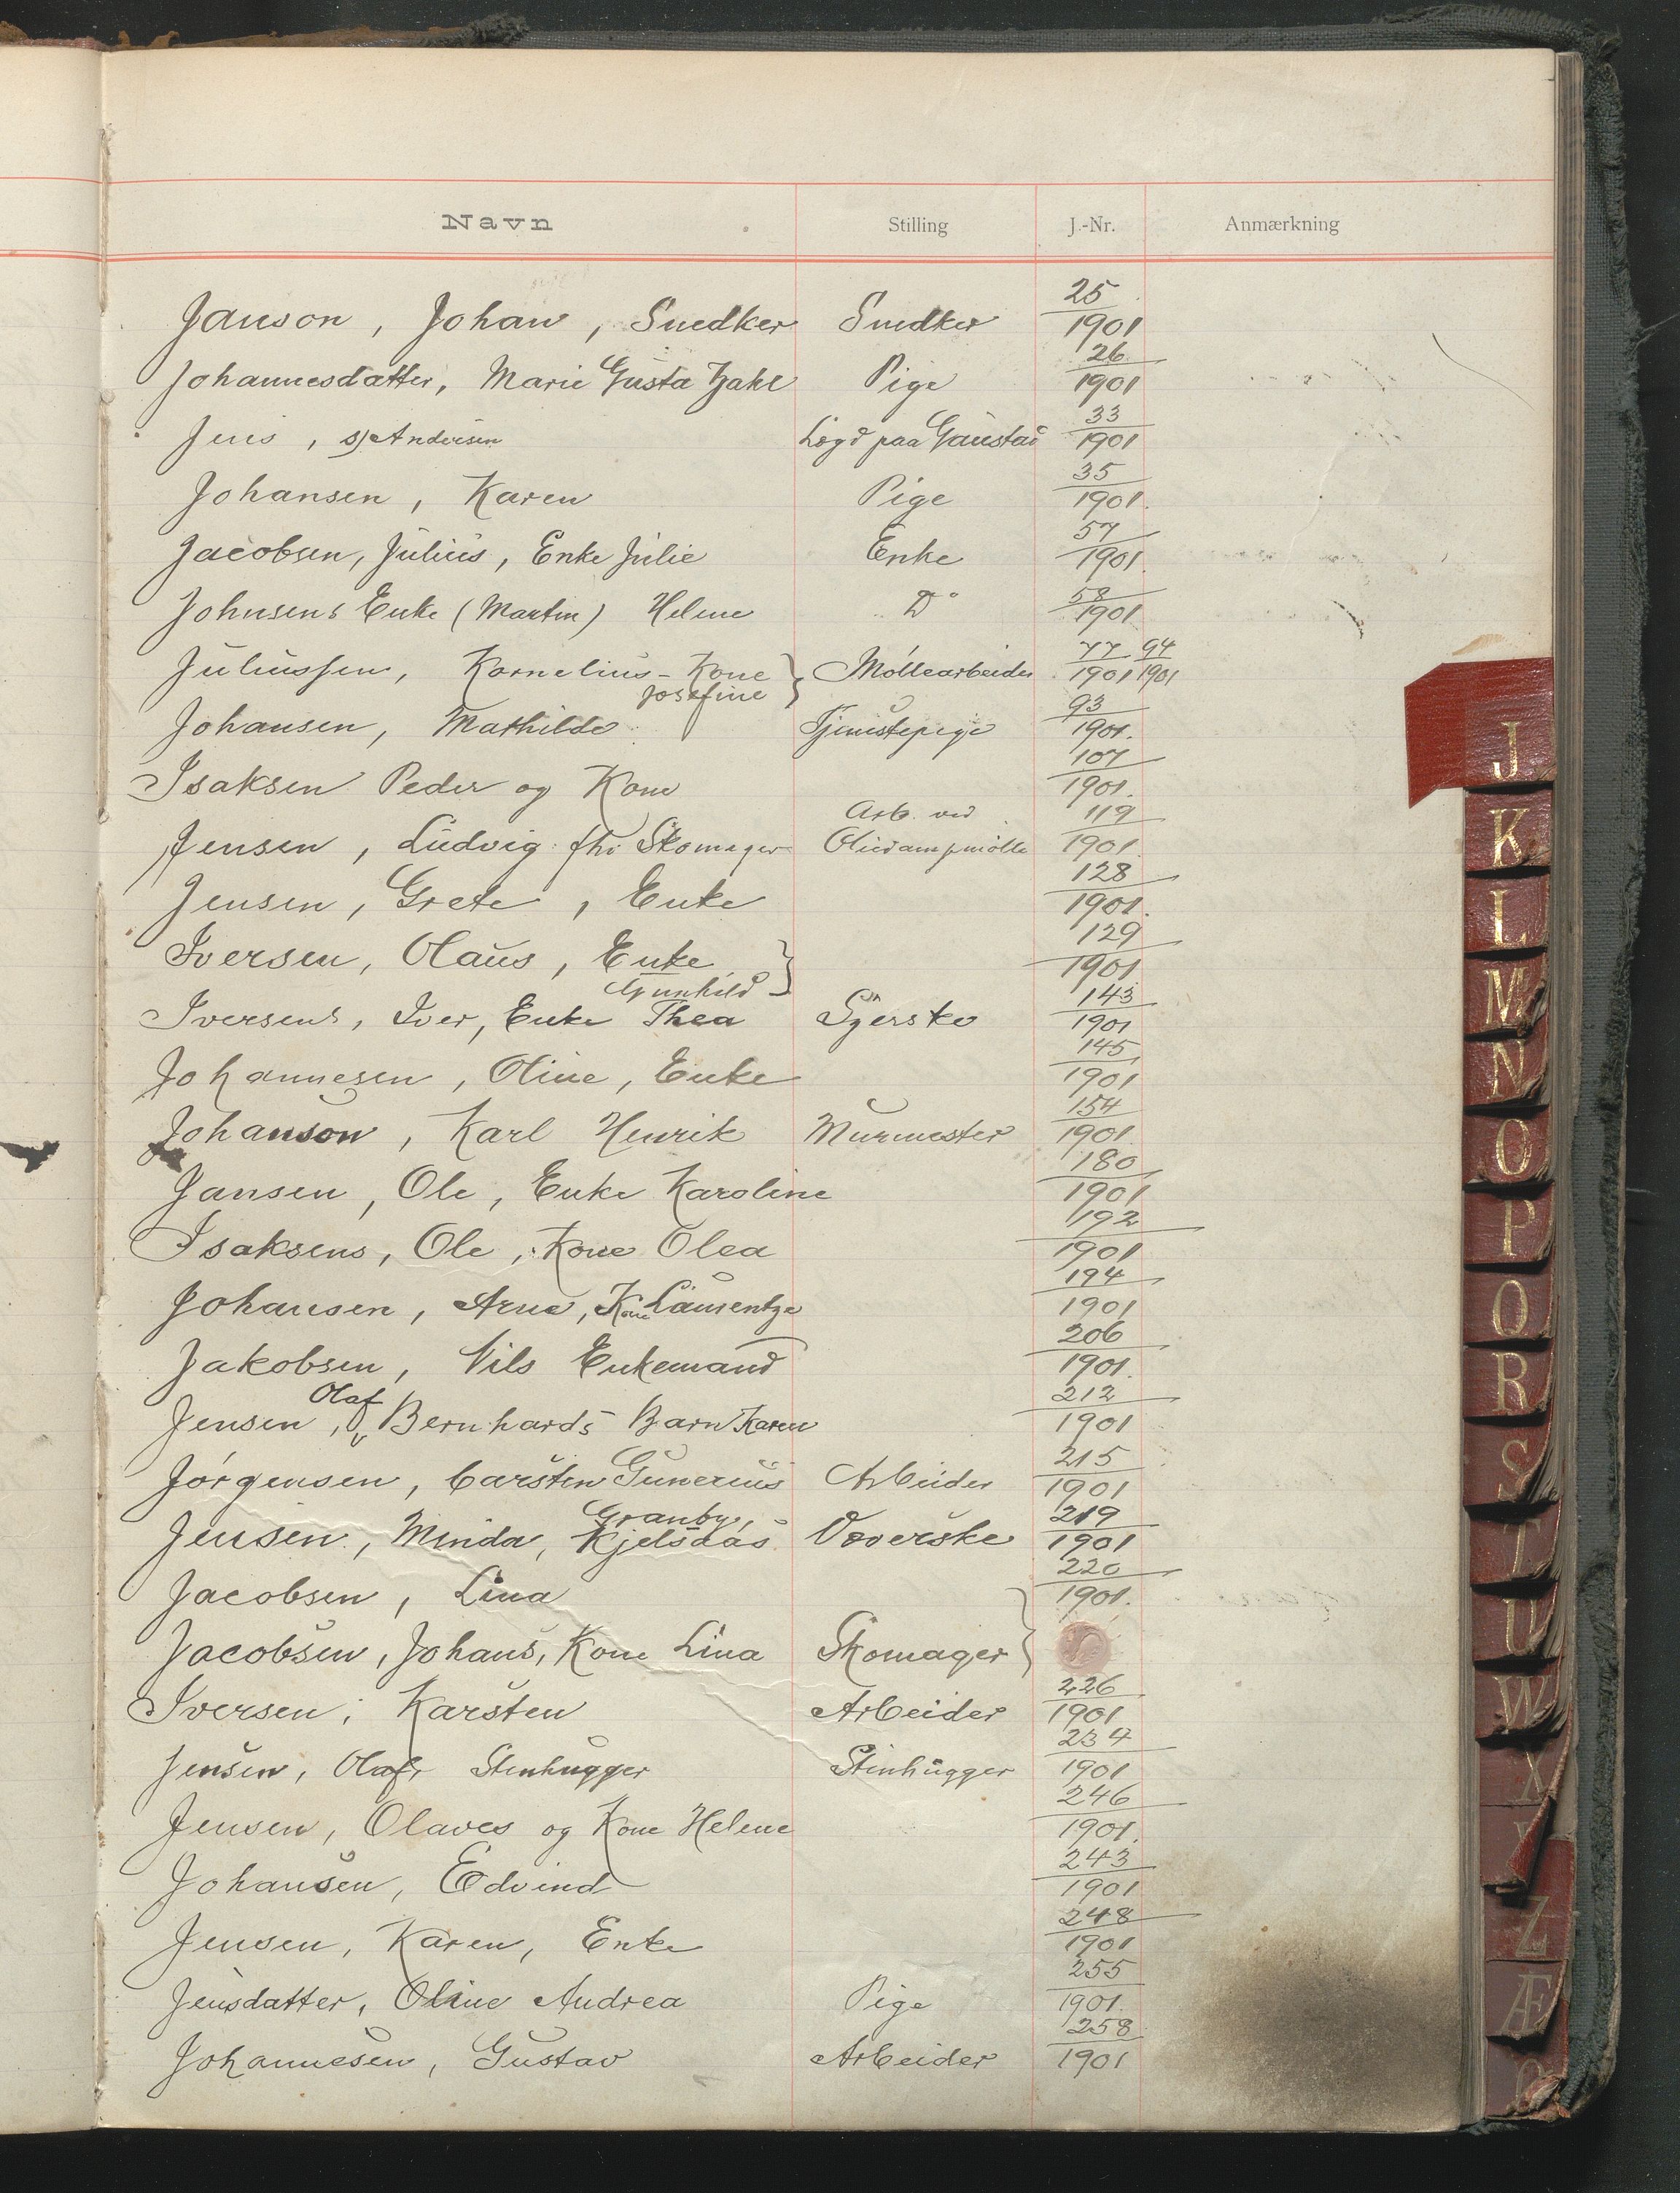 Navn Stilling J.-Nr. Anmærkning
Janson, Johan, Snedker Snedker 25/1901
Johannesdatter, Marie Gusta Dahl Pige 26/1901
Jens, s/Andersen Lægd paa Gaustad 33/1901
Johansen, Karen Pige 35/1901
Jacobsen, Julius, Enke Julie Enke 57/1901
Johnsens Enke (Martin) Helene Do 58/1901
Juliussen, Kornelius - Kone } Møllearbeider 77/1901 94/1901
Josefine
Johansen, Mathilde Tjenestepige 93/1901
Isaksen Peder og Kone 107/1901
Arb. ved
Jensen, Ludvig fhv Skomager Oliedampmølle 119/1901
Jensen, Grete, Enke 128/1901
Iversen, Olaus, Enke } 129/1901
Gunhild
Iversens, Iver, Enke Thea Syerske 143/1901
Johannesen, Oline, Enke 145/1901
Johanson, Karl Henrik Murmester 154/1901
Jansen, Ole, Enke Karoline 180/1901
Isaksens, Ole, Kone Olea 192/1901
Johansen, Arne, Kone Laurentze 194/1901
Jakobsen, Nils Enkemand 206/1901
Olaf
Jensen, Bernhards Barn Karen 212/1901
Jørgensen, Carsten Gunerius Arbeider 215/1901
Granby,
Jensen, Minda, Kjelsaas Væverske 219/1901
Jacobsen, Lina 220/1901
Jacobsen, Johans, Kone Lina Skomager }
Iversen, Karsten Arbeider 226/1901
Jensen, Olaf, Stenhugger Stenhugger 234/1901
Jensen, Olaves og Kone Helene 246/1901
Johansen, Edvind 243/1901
Jensen, Karen, Enke 248/1901
Jensdatter, Oline Andrea Pige 255/1901
Johannesen, Gustav Arbeider 258/1901
J
K
L
M
N
O
P
Q
R
S
T
U
W
X
Y
Z
Æ
Ø